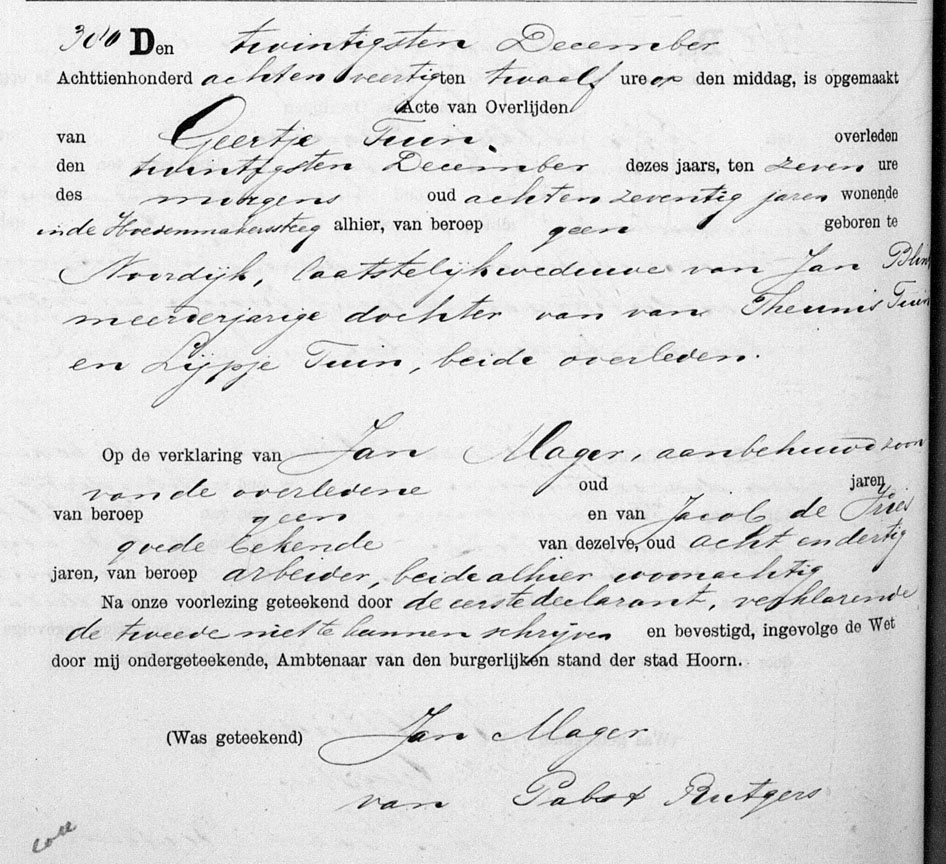 300 Den twintigsten December
Achttienhonderd achten veertig ten twaalf ure op den middag, is opgemaakt
Acte van Overlijden
van Geertje Tuin overleden
den twintigsten December dezes jaars, ten zeven ure
des morgens oud achten zeventig jaren wonende
in de Hoedenmakerssteeg alhier, van beroep geen geboren te
Noordijk, laatstelijk weduwe van Jan
meerderjarige dochter van van Theunis Tuin
en Lijpje Tuin, beide overleden.
Op de verklaring van Jan Mager, aanbehuwd zoon
van de overledene oud jaren
van beroep geen en van Jacob de Vries
goede bekende van dezelve, oud acht en dertig
jaren, van beroep arbeider, beide alhier woonachtig
Na onze voorlezing geteekend door de eerste declarant, verklarende
de tweede niet te kunnen schrijven en bevestigd, ingevolge de Wet
door mij ondergeteekende, Ambtenaar van den burgerlijken stand der stad Hoorn.
(Was geteekend) Jan Mager
van Pabst Rutgers